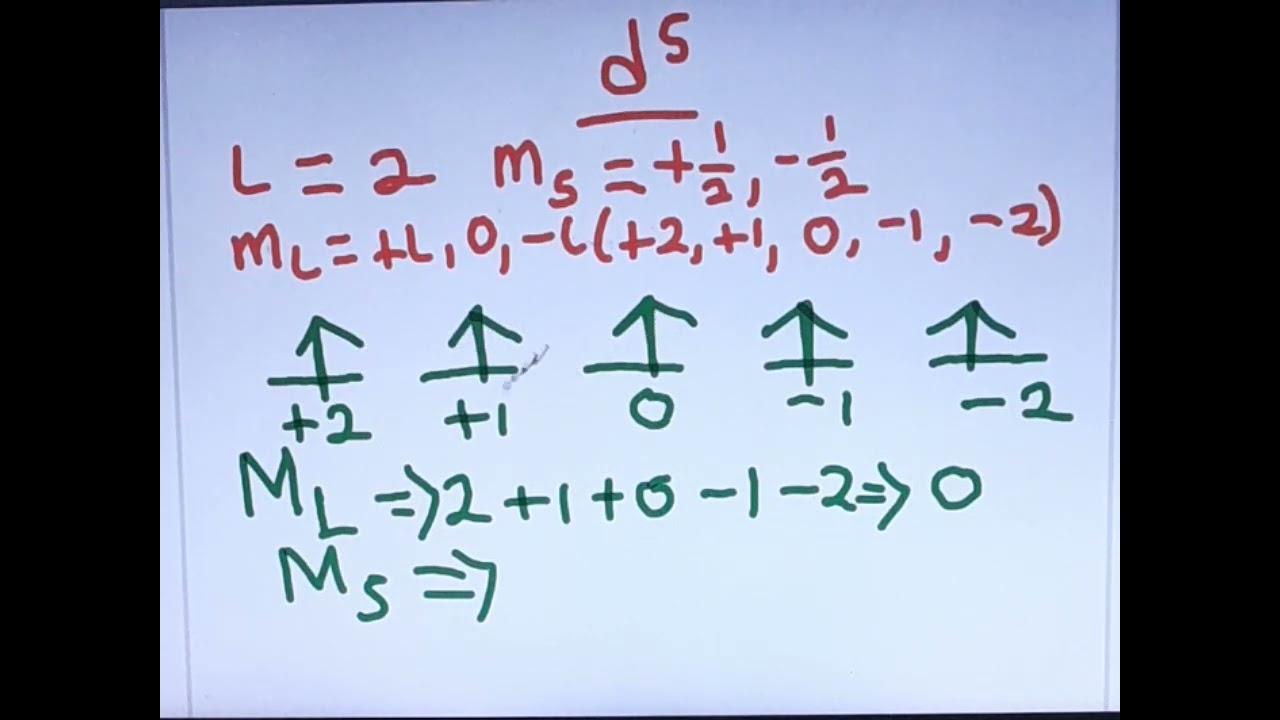 d⁵
L = 2 mₛ = +1/2, -1/2
m_L = +L, 0, -L (+2, +1, 0, -1, -2)
+2 +1 0 -1 -2
M_L ⇒ 2 + 1 + 0 - 1 - 2 ⇒ 0
M_S ⇒